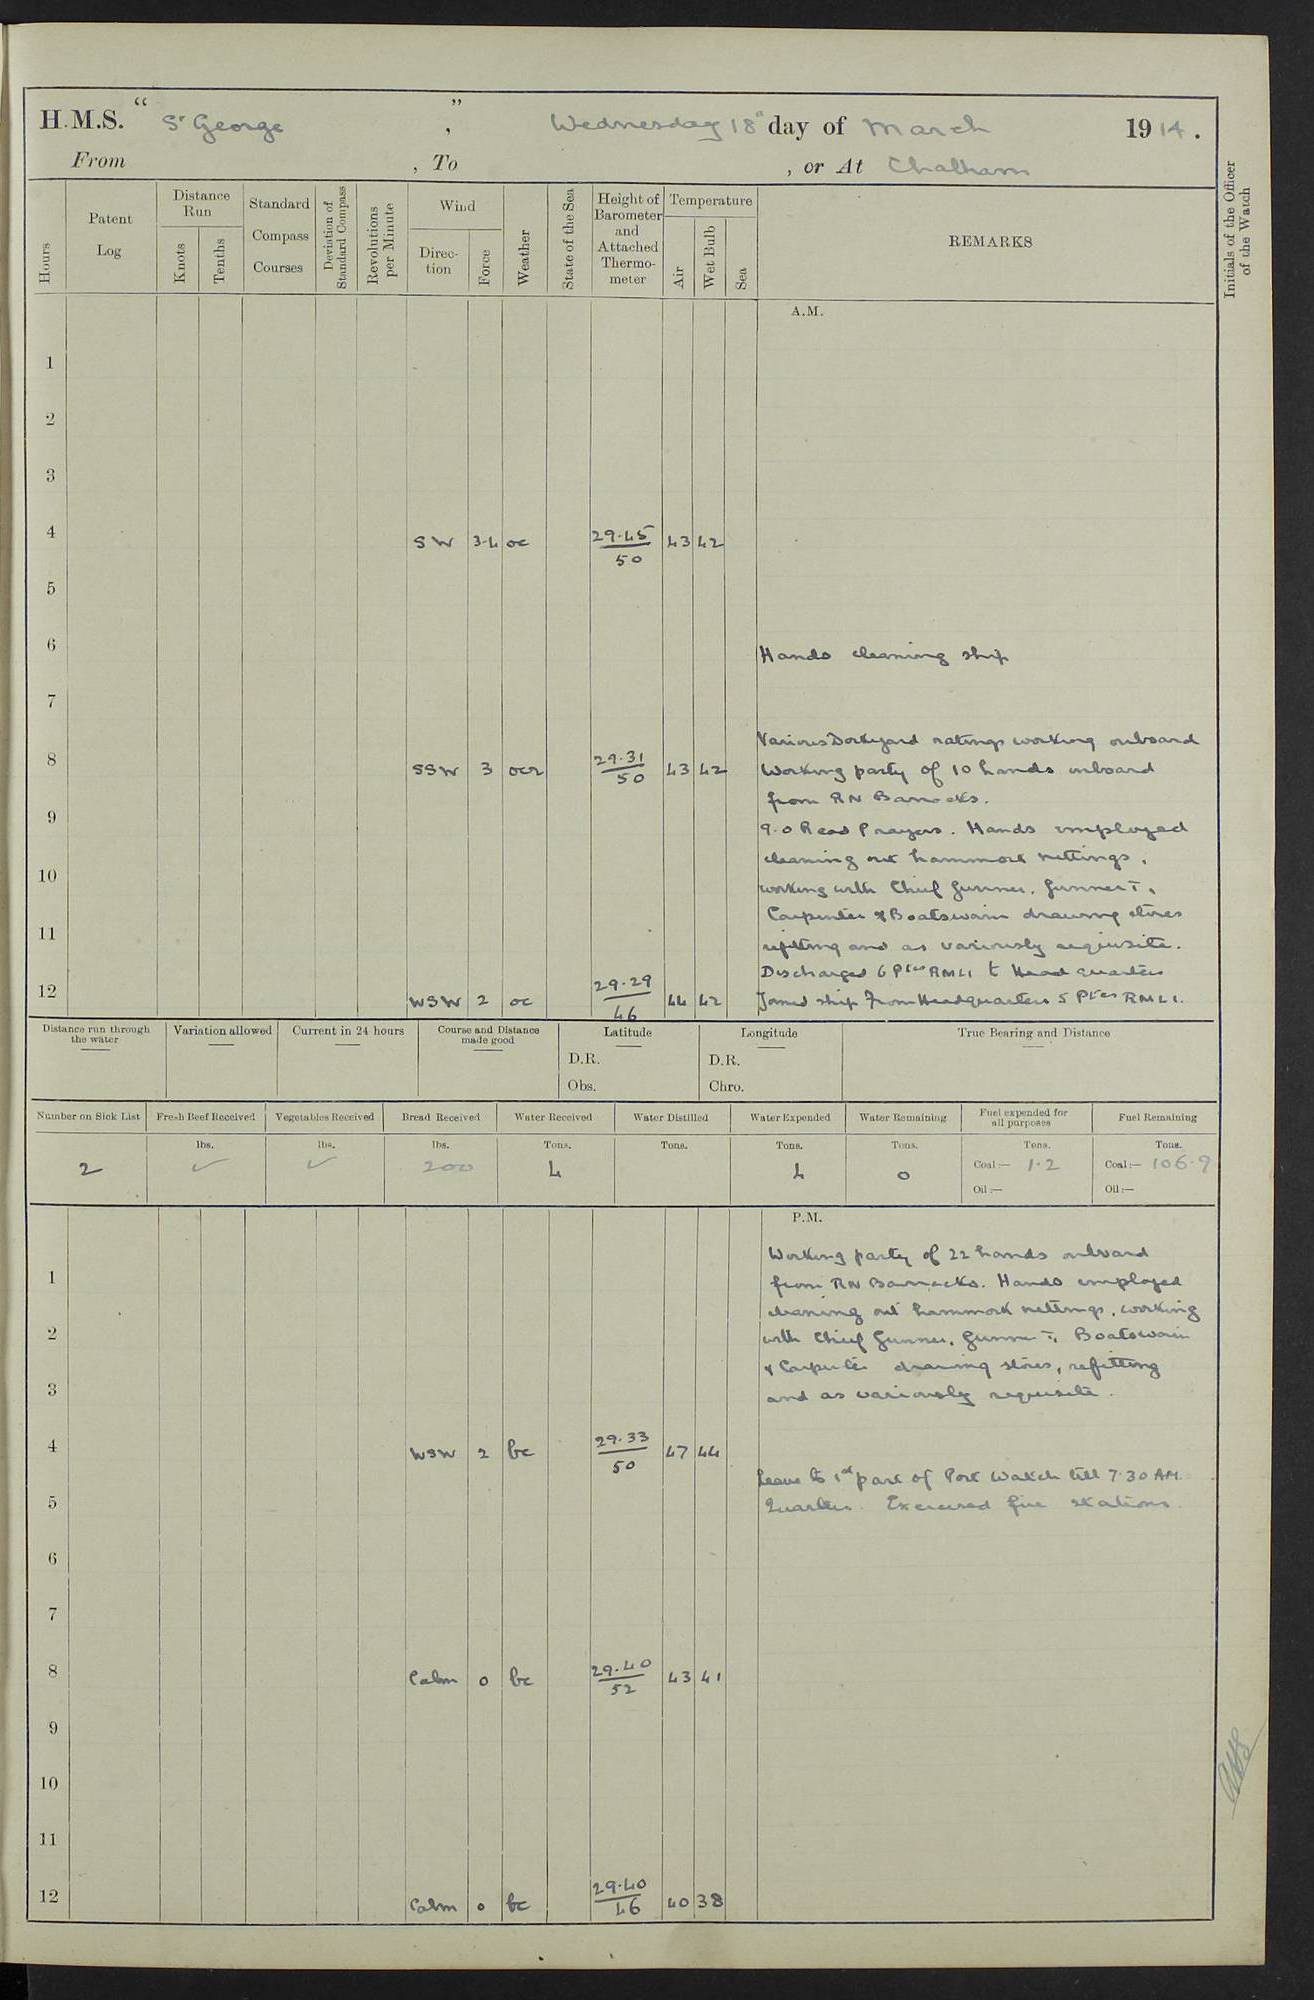 H.M.S. “ St George ” , Wednesday 18th day of March 1914.
From , To , or At Chatham
Hours
Patent Log
Distance Run
Knots
Tenths
Standard Compass Courses
Deviation of Standard Compass
Revolutions per Minute
Wind
Direction
Force
Weather
State of the Sea
Height of Barometer and Attached Thermometer
Temperature
Air
Wet Bulb
Sea
REMARKS
Initials of the Officer of the Watch
A.M.
1
2
3
4 SW 3-4 oc 29·45/50 43 42
5
6 Hands cleaning ship
7
Various Dockyard ratings working onboard
8 SSW 3 ocr 29·31/50 43 42 Working party of 10 hands onboard
from RN Barracks.
9 9·0 Read Prayers. Hands employed
cleaning out hammock nettings,
10 working with Chief Gunner, Gunner T,
Carpenter & Boatswain drawing stores
11 refitting and as variously requisite.
Discharged 6 Ptes RMLI to Head quarters
12 WSW 2 oc 29·29/46 44 42 Joined ship from Headquarters 5 Ptes RMLI.
Distance run through the water
Variation allowed
Current in 24 hours
Course and Distance made good
Latitude
D.R.
Obs.
Longitude
D.R.
Chro.
True Bearing and Distance
Number on Sick List
Fresh Beef Received
Vegetables Received
Bread Received
Water Received
Water Distilled
Water Expended
Water Remaining
Fuel expended for all purposes
Fuel Remaining
lbs. lbs. lbs. Tons. Tons. Tons. Tons. Tons. Tons.
2 ✓ ✓ 200 4 4 0 Coal:— 1·2 Coal:— 106·9
Oil:— Oil:—
P.M.
Working party of 22 hands onboard
1 from RN Barracks. Hands employed
cleaning out hammock nettings, working
2 with Chief Gunner, Gunner T, Boatswain
& Carpenter drawing stores, refitting
3 and as variously requisite.
4 WSW 2 bc 29·33/50 47 44
Leave to 1st part of Port Watch till 7·30 AM.
5 Quarters. Exercised fire stations.
6
7
8 Calm 0 bc 29·40/52 43 41
9
10
11
12 Calm 0 bc 29·40/46 40 38